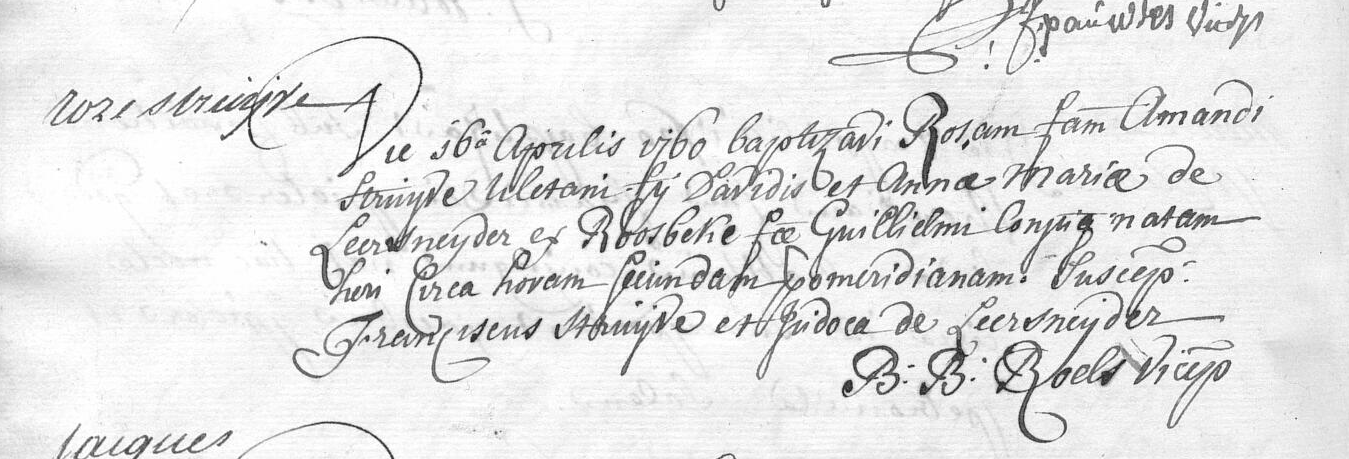 pauwels vicep
roze struijve
Die 16ª Aprilis 1760 baptizavi Rosam fam Amandi
Struijve Uletani fij Davidis et Annæ Mariæ de
Leersneyder ex Roosbeke fæ Guillielmi Conjug natam
heri Circa horam secundam pomeridianam. Suscep:
Franciscus Struijve et Judoca de Leersneijder
B: B: Roels Vicep
Jacques